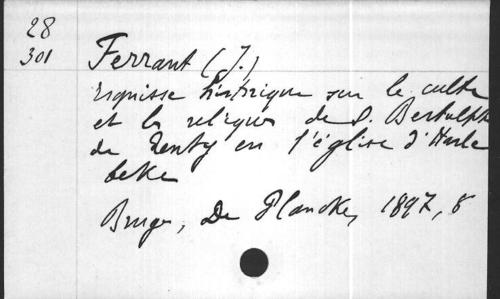 28
301
Ferrant (J.)
Esquisse historique sur le culte
et les reliques de S. Bertulphe
de Renty en l'église d'Harle
beke
Bruges, De Plancke, 1897, 8